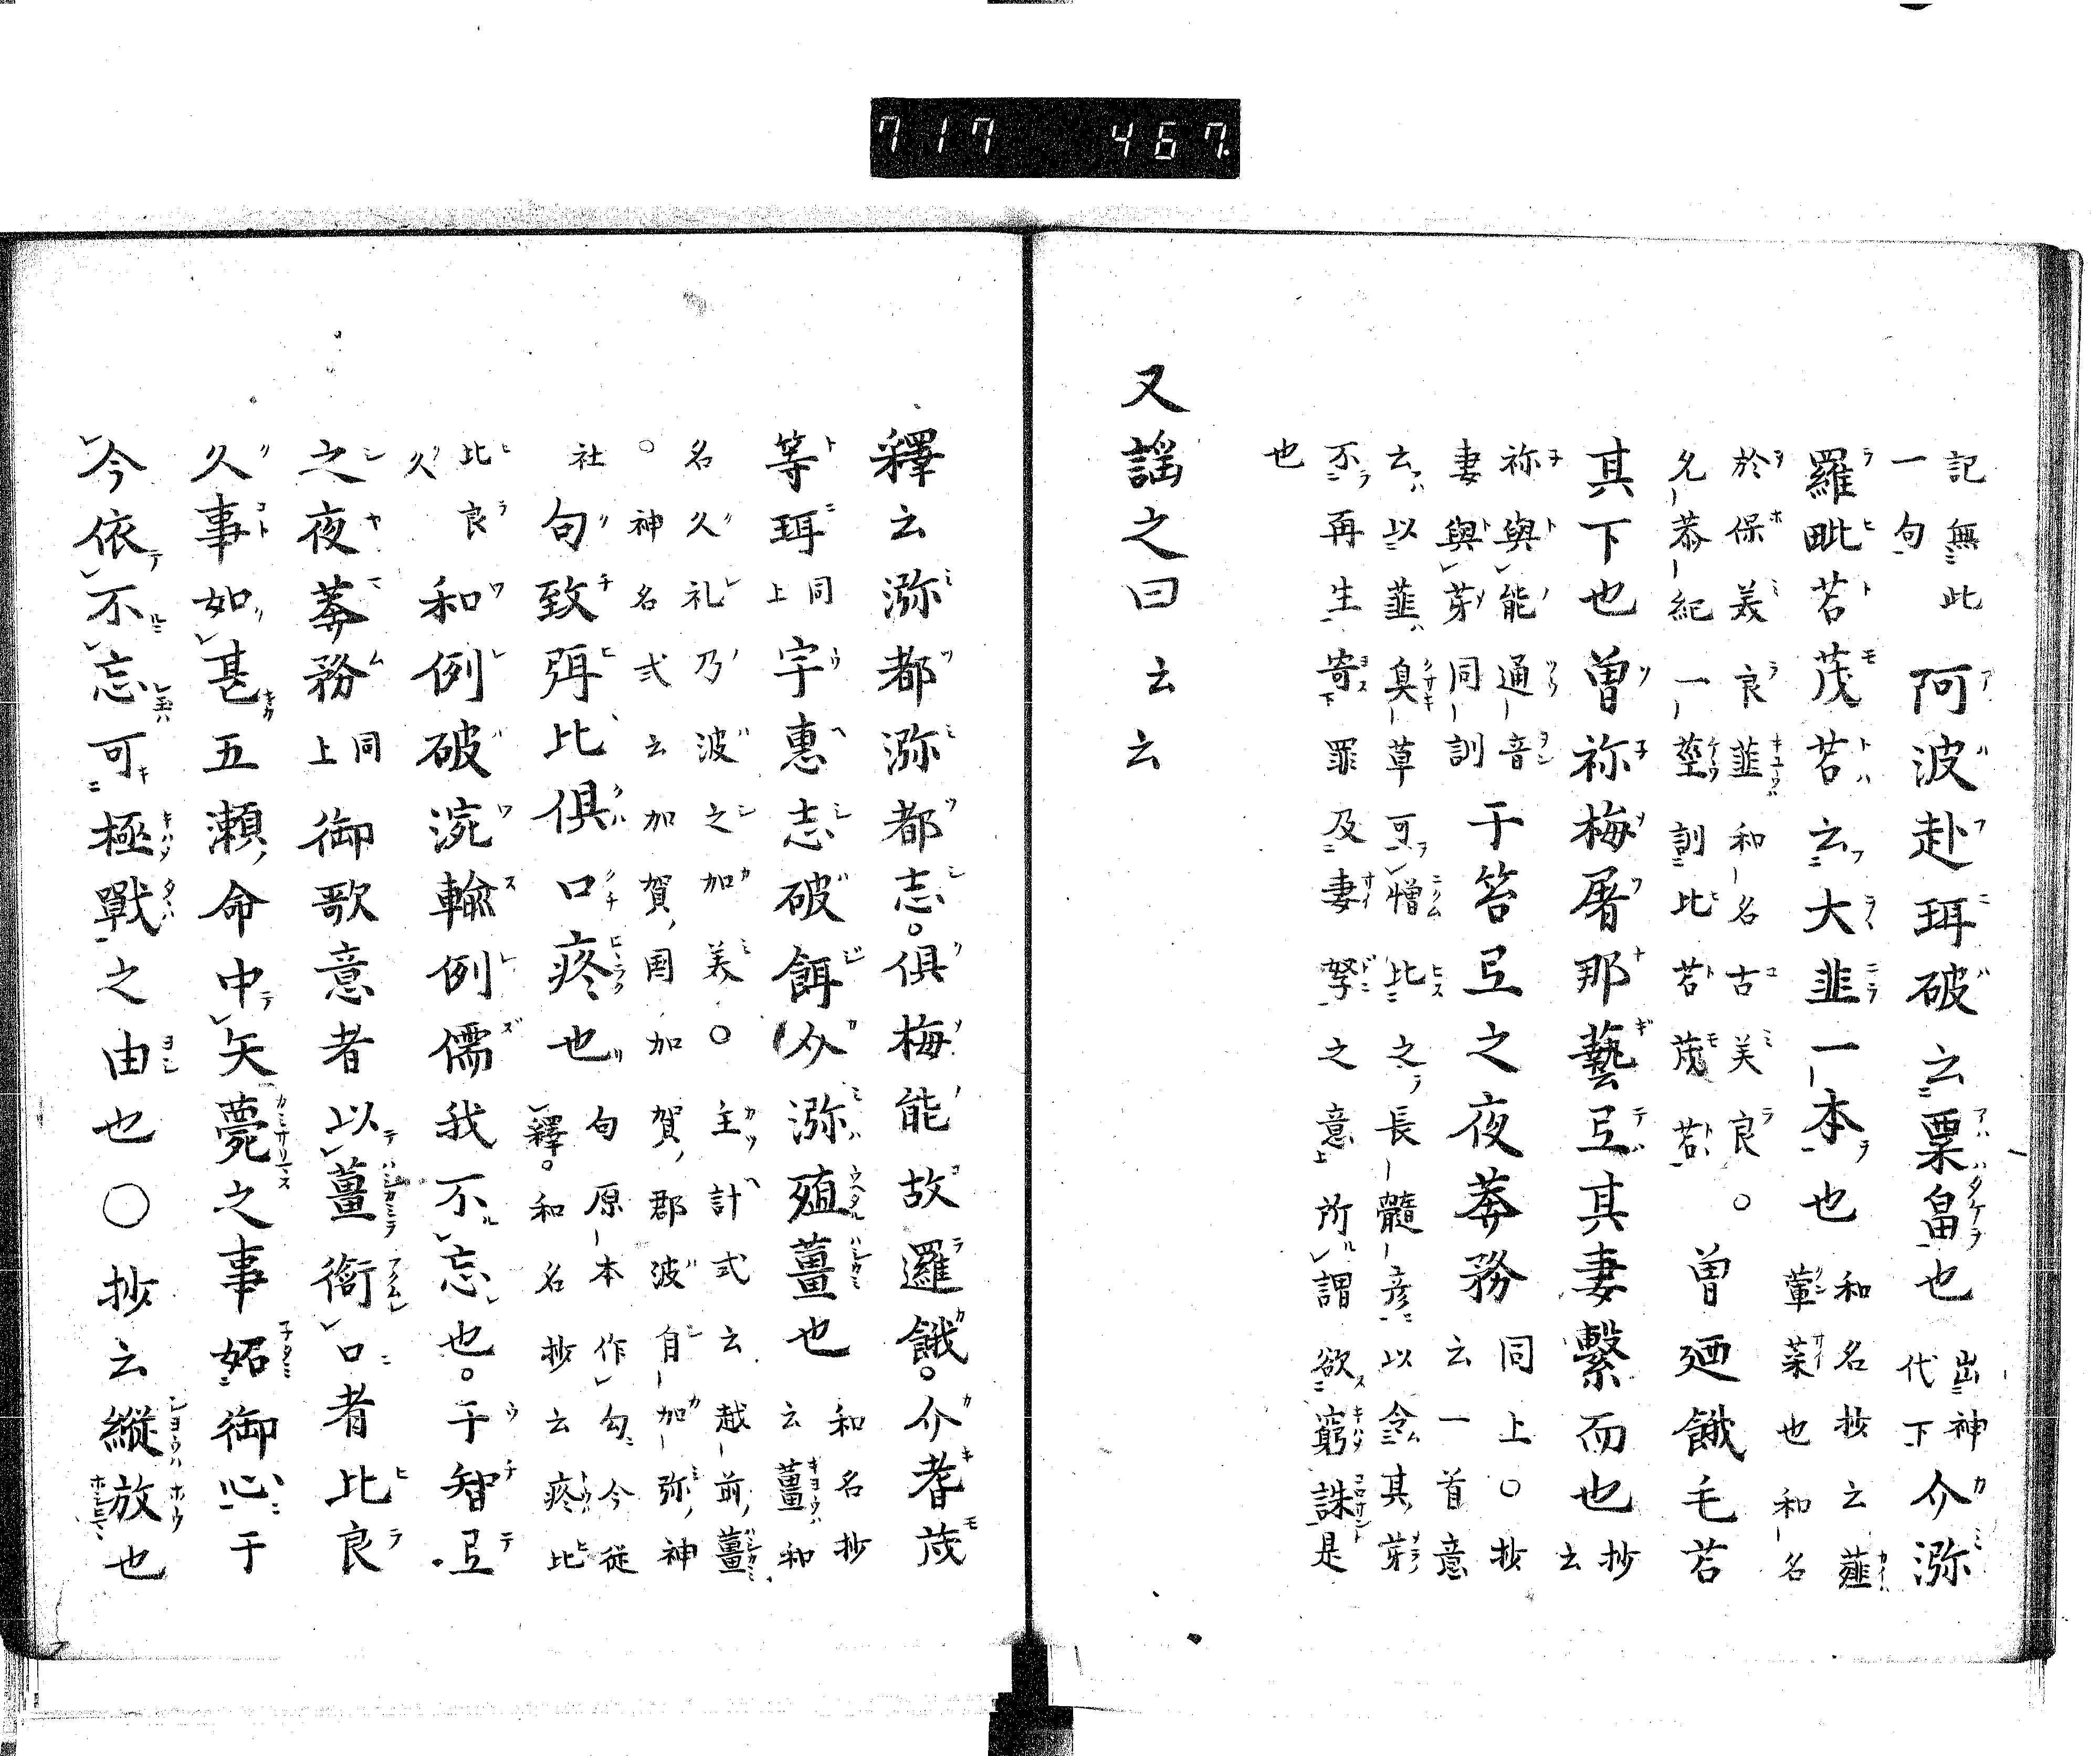 717 467.
記無此
一句
阿波赴珥破云粟畠也
出神
代下
介瀰
羅毗苫茂苫云大韮一本也
和名抄云薤
葷菜也和名
於保美良韮和名古美良。
凡恭紀一莖訓比苫茂苫
曽廼餓毛苫
其下也曽祢梅屠那藝弖其妻繋而也
抄
云
祢與能通音
妻與芽同訓
于笞弖之夜莽務
同上〇抄
云一首意
云以韮臭草可憎比之長髓彦以令其芽
不再生寄罪及妻孥之意所謂欲窮誅是
也
又謡之曰云云
釋云瀰都瀰都志。俱梅能故邏餓。介耆茂
等珥
同
上
宇惠志破餌介瀰殖薑也
和名抄
云薑和
名久礼乃波之加美〇主計式云越前薑
〇神名式云加賀国加賀郡波自加弥神
社
句致弭比俱口疼也
句原本作勾今從
釋。和名抄云疼比
比良
久
和例破涴輸例儒我不忘也。于智弖
之夜莽務
同
上
御歌意者以薑銜口者比良
久事如甚五瀬命中矢薨之事妬御心于
今依不忘可極戰之由也〇抄云縱放也